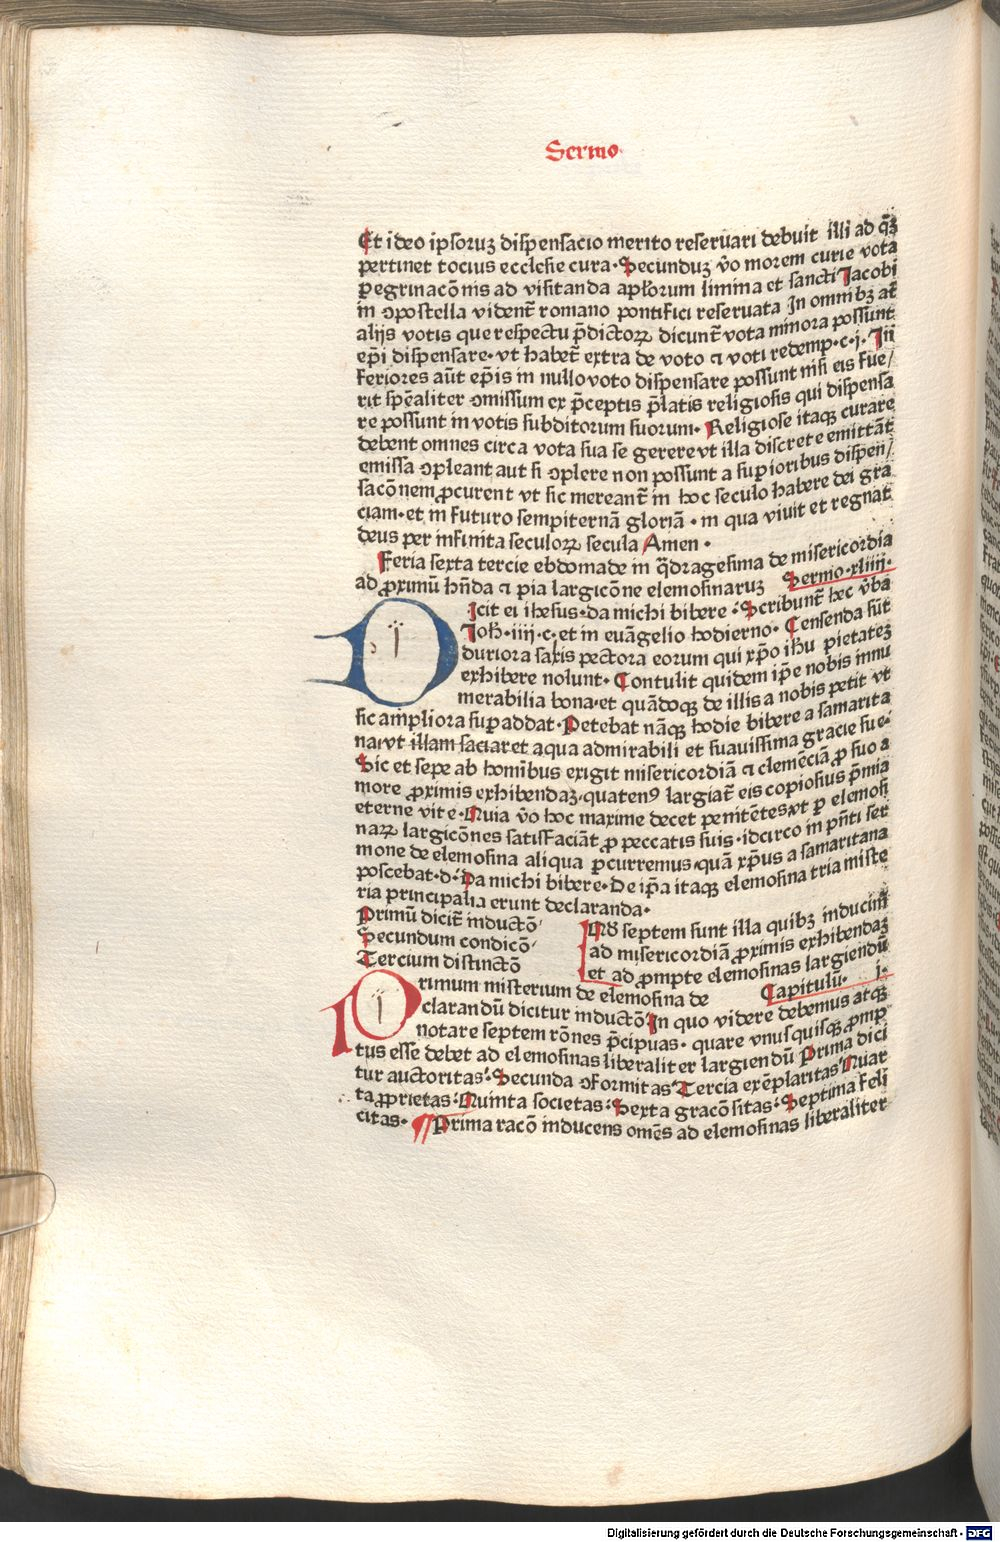 Sermo
Et ideo ipsoruꝫ dispensacio merito reseruari debuit illi ad qᷓꝫ
pertinet tocius ecclesie cura· Secunduꝫ v̄o morem curie vota
peregrinacōnis ad visitanda aplorum limina et sancti Jacobi
in ꝯpostella vident᷑ romano pontifici reseruata In omnibꝫ at᷑
alijs votis que respectu p̄dictoꝝ dicunt᷑ vota minora possūnt
ep̄i dispensare· vt habet᷑ extra de voto ⁊ voti redemp·c·i· In
feriores aūt ep̄is in nullo voto dispensare possunt nisi eis fue/
rit sp̄ealiter ꝯmissum ex p̄ceptis p̄latis religiosis qui dispensa
re possunt in votis subditorum suorum· Religiose itaqꝫ curare
debent omnes circa vota sua se gerere vt illa discrete emittāt
emissa ꝯpleant aut si ꝯplere non possunt a superioribus dispen/
sacōnem ꝓcurent vt sic mereant᷑ in hoc seculo habere dei gra
ciam· et in futuro sempiternā gloriā· in qua viuit et regnat
deus per infinita seculoꝝ secula Amen·
Feria sexta tercie ebdomade in qᷓdragesima de misericordia
ad ꝓximū hn̄da ⁊ pia largicōne elemosinaruꝫ Sermo·xliiij·
Dicit ei ihesus· da michi bibere· Scribunt᷑ hec v̄ba
Joh·iiij·c·et in euāgelio hodierno· Censenda sūt
duriora saxis pectora eorum qui xp̄o ihū pietateꝫ
exhibere nolunt· Contulit quidem ip̄e nobis innu
merabilia bona· et quādoqꝫ de illis a nobis petit vt
sic ampliora superaddat· Petebat nāqꝫ hodie bibere a samarita
na· vt illam saciaret aqua admirabili et suauissima gracie sue·
Sic et sepe ab hominibus exigit misericordiā ⁊ clemēciā ꝓ suo a
more ꝓximis exhibendaꝫ· quatenꝰ largiat᷑ eis copiosius p̄mia
eterne vite· Quia v̄o hoc maxime decet penitētes· vt ꝑ elemosi
naꝝ largicōnes satisfaciāt ꝓ peccatis suis· idcirco in pn̄ti ser
mone de elemosina aliqua ꝑcurremus· quā xp̄us a samaritana
poscebat·d· Da michi bibere· De ip̄a itaqꝫ elemosina tria miste
ria principalia erunt declaranda·
Primū dicit᷑ inductō
Secundum condicō
Tercium distinctō
Quod septem sunt illa quibꝫ inducim̄
ad misericordiā ꝓximis exhibendaꝫ
et ad ꝓmpte elemosinas largiendū
Capitulū· i·
Primum misterium de elemosina de
clarandū dicitur inductō· In quo videre debemus atqꝫ
notare septem rōnes p̄cipuas· quare vnusquisqꝫ ꝓmp
tus esse debet ad elemosinas liberaliter largiendū Prima dici
tur auctoritas· Secunda ꝯformitas· Tercia exēplaritas· Quar
ta ꝓprietas· Quinta societas· Sexta gracōsitas· Septima feli
citas· ¶ Prima racō inducens omēs ad elemosinas liberaliter
Digitalisierung gefördert durch die Deutsche Forschungsgemeinschaft - DFG